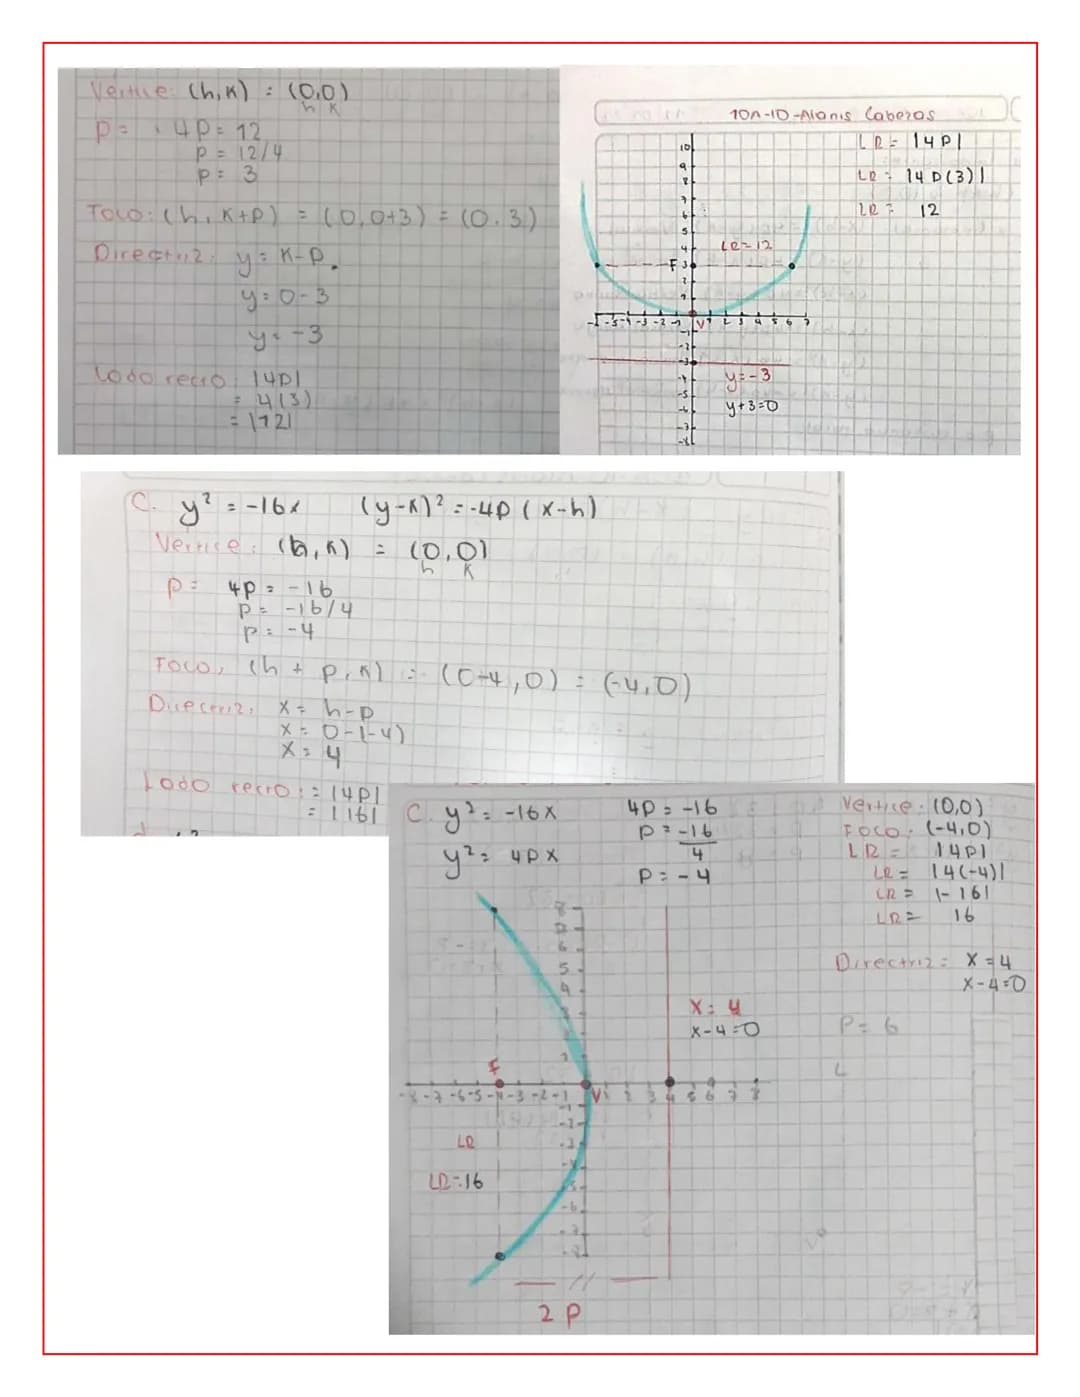 Vértice: (h,K) = (0,0)
h K
P= 4P= 12
P = 12/4
P = 3
Foco: (h, K+P) = (0,0+3) = (0.3)
Directriz: y= K-P.
y= 0-3
y= -3
Lado recto: |4P|
= 4(3)
= |12|
10A-1D-Alanis Cabezas
LR= |4P|
LR= |4P(3)|
LR= 12
10
9
8
7
6
5
4
LR=12
F 3
2
1
-5 -4 -3 -2 -1 V 1 2 3 4 5 6 7
-1
-2
-3
y=-3
-4
-5
y+3=0
-6
-7
-8
C. y² = -16x (y-K)² = -4P (x-h)
Vertice: (h,K) = (0,0)
h K
P= 4P = -16
P= -16/4
P= -4
Foco: (h + P, K) = (0-4,0) = (-4,0)
Directriz: X= h-P
X= 0-(-4)
X= 4
Lado recto: = |4P|
= |16|
C. y²= -16x
y²= 4Px
4P= -16
P= -16
4
P= -4
Vertice: (0,0)
Foco: (-4,0)
LR= |4P|
LR= |4(-4)|
LR= |-16|
LR= 16
Directriz= X=4
X-4=0
8
7
6
5
4
3
2
1
X= 4
X-4=0
P= 6
F
-8 -7 -6 -5 -4 -3 -2 -1 V 1 2 3 4 5 6 7 8
-1
-2
-3
-4
-5
-6
-7
-8
LR
LR=16
2 P